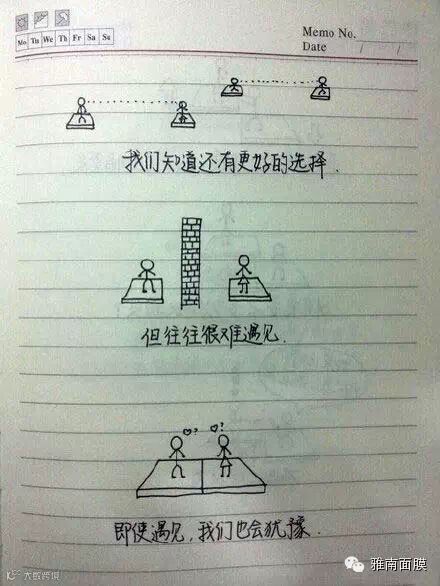 Memo No.
Mo Tu We Th Fr Sa Su
Date / /
我们知道还有更好的选择.
但往往很难遇见.
♡? ♡?
即使遇见,我们也会犹豫.
大数跨境
雅南面膜